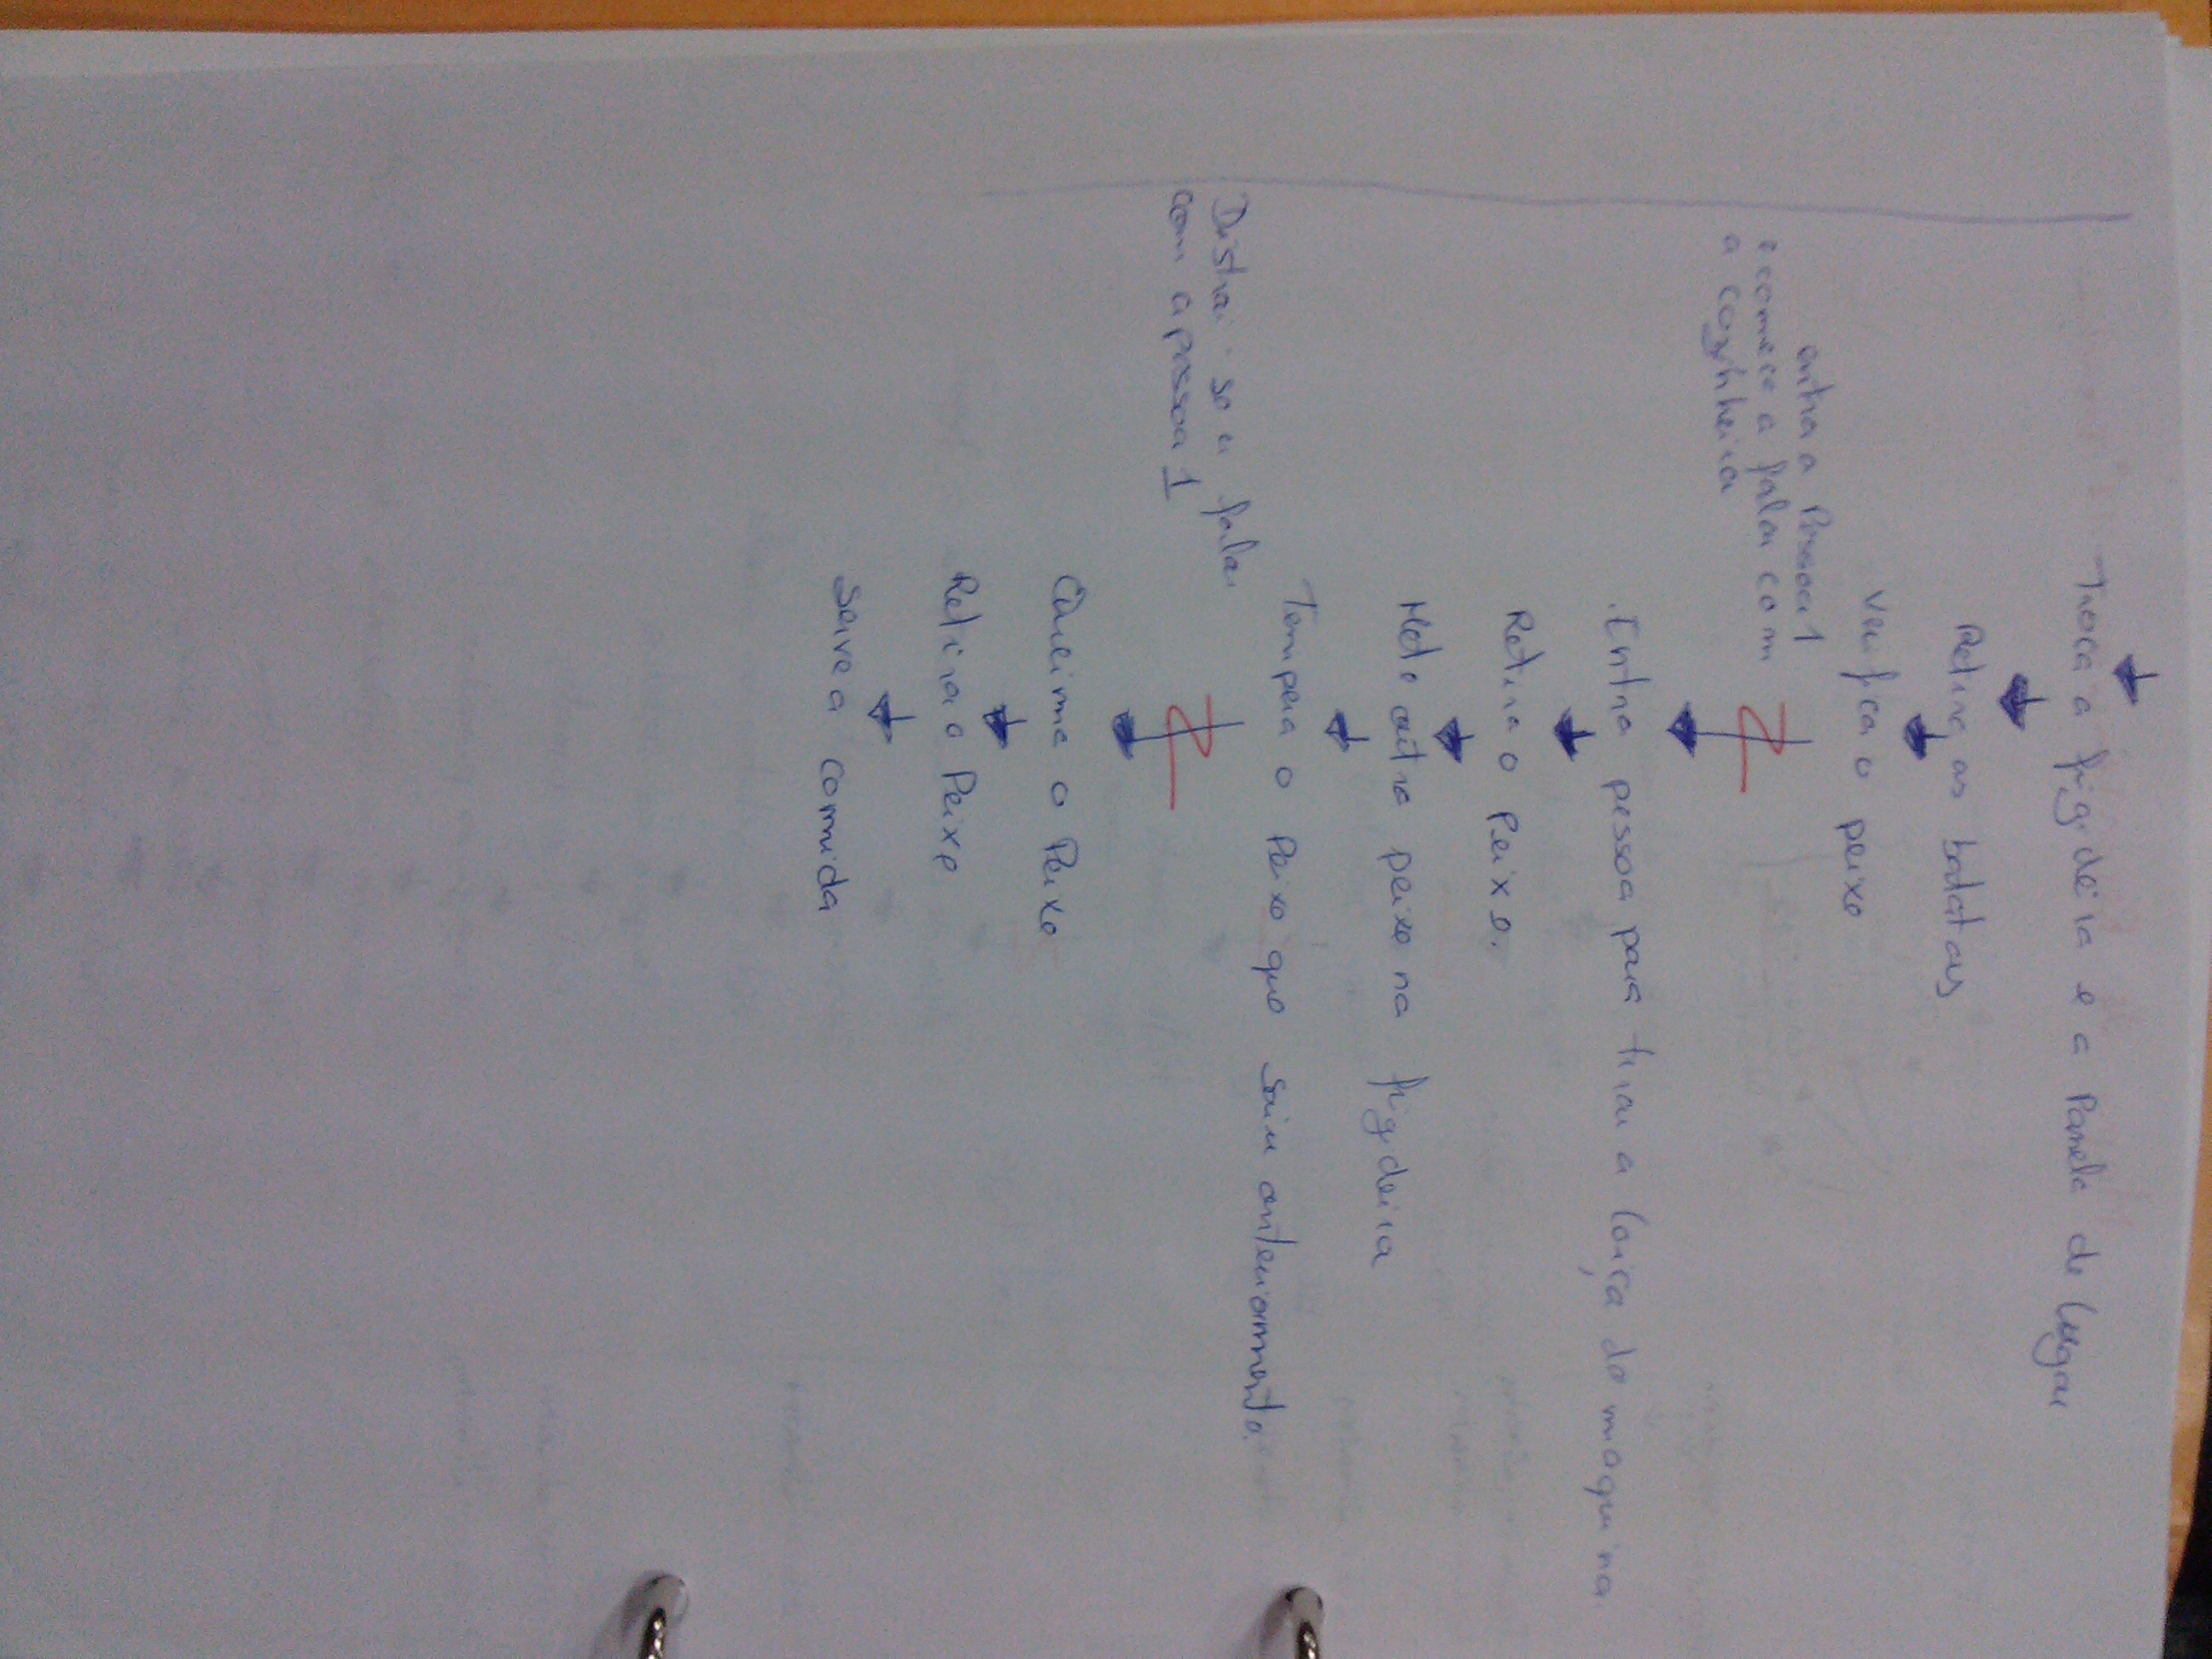 Troca a frigideira e a Panela de lugar
Retira as batatas
Verifica o peixe
entra a Pessoa 1
e comece a falar com
a cozinheira
Entra pessoa para tirar a loiça do maquina
Retira o Peixe.
Mete outro peixe na frigideira
Tempera o Peixe que saiu anteriormente.
Distrai-se a falar
com a pessoa 1
Queima o Peixe
Retira o Peixe
Serve a comida